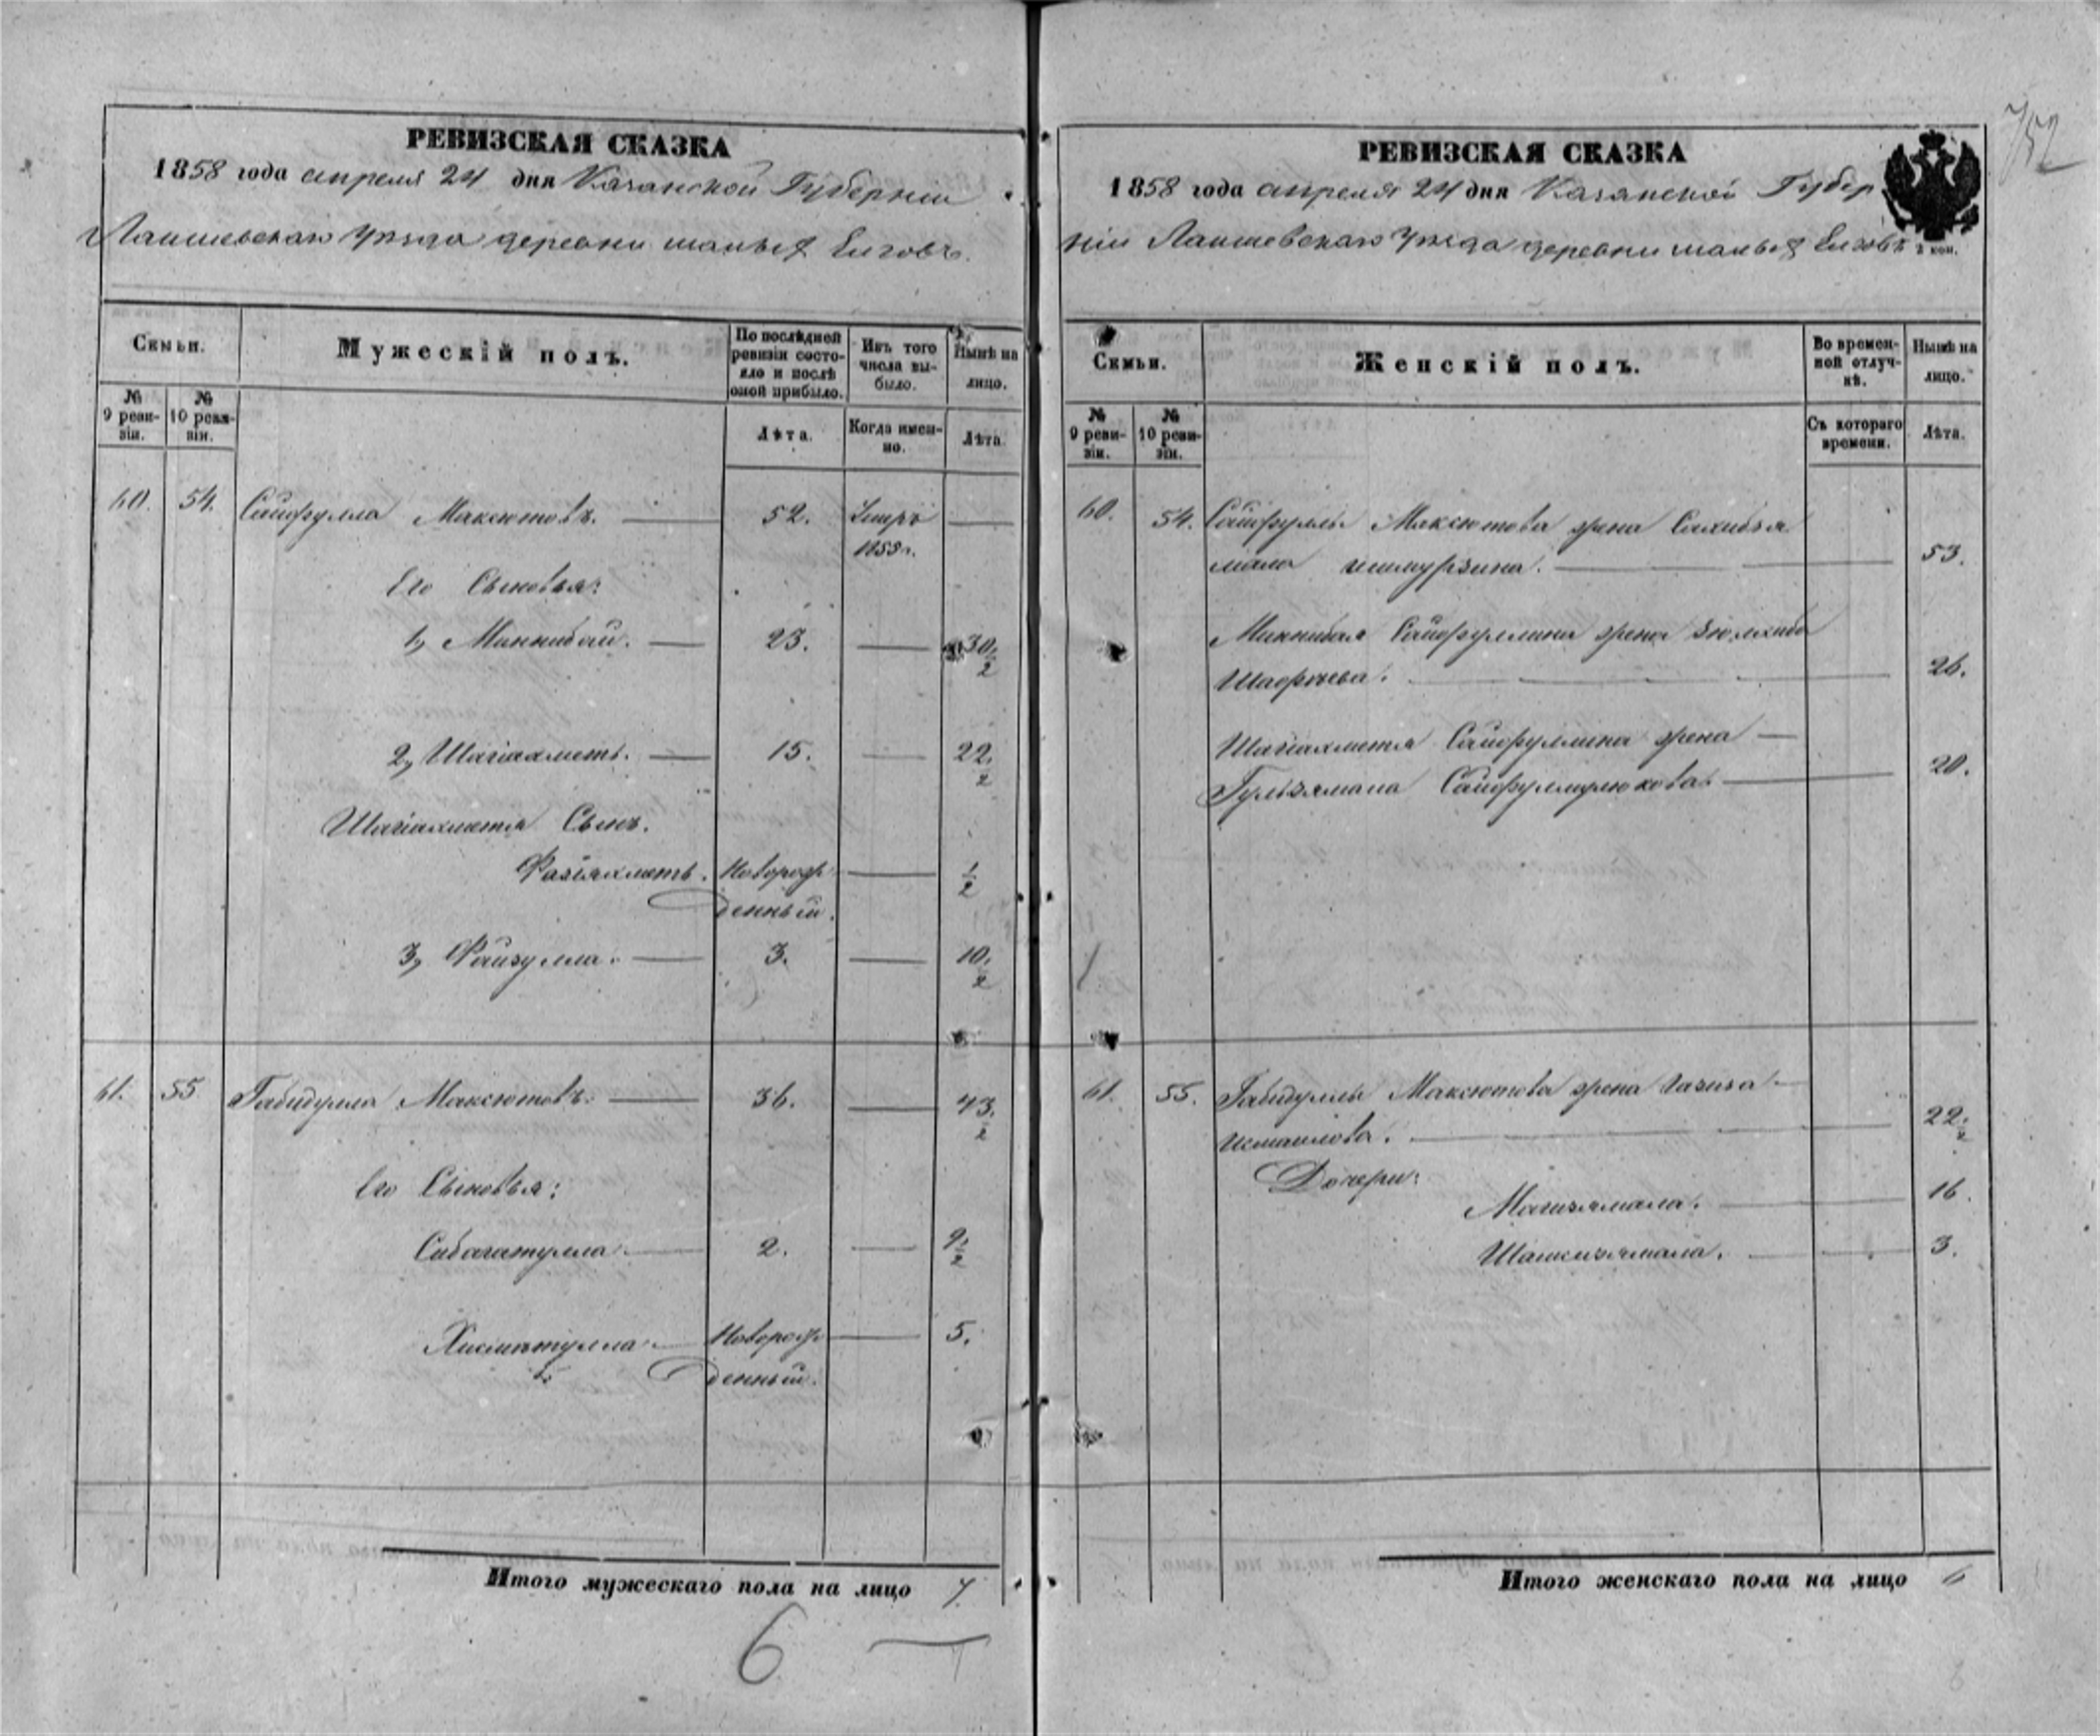 752
РЕВИЗСКАЯ СКАЗКА
1858 года апреля 24 дня Казанской Губерніи
Лаишевскаго Уезда деревни малыхъ Елговъ.
Семьи.
Мужескій полъ.
По послѣдней ревизіи состояло и послѣ оной прибыло.
Изъ того числа выбыло.
Нынѣ на лицо.
№ 9 ревизіи.
№ 10 ревизіи.
Лѣта.
Когда именно.
Лѣта.
60. 54. Сайфулла Максютовъ. 52. Умеръ
1853 г.
Его Сыновья:
1, Миннибай. 23. 30 1/2
2, Шагіахметъ. 15. 22 1/2
Шагіахметя Сынъ.
Фазіяхметъ. Новорож
денный. 1/2
3, Файзулла. 3. 10 1/2
61. 55 Габидулла Максютовъ. 36. 43 1/2
Его Сыновья:
Сибагатулла 2. 9 1/2
Хисматулла Новорож
денный. 5.
Итого мужескаго пола на лицо 7.
6
РЕВИЗСКАЯ СКАЗКА
1858 года апреля 24 дня Казанской Губер
ніи Лаишевскаго Уезда деревни малыхъ Елговъ
2 коп.
Семьи.
Женскій полъ.
Во временной отлучкѣ.
Нынѣ на лицо.
№ 9 ревизіи.
№ 10 ревизіи.
Съ котораго времени.
Лѣта.
60. 54. Сайфуллы Максютова жена Сахибзя
мала ишмурзина. 53.
Миннибая Сайфуллина жена
26.
Шагіахметя Сайфуллина жена
Гульзямала Сайфулмулюкова 20.
61. 55. Габидуллы Максютова жена Газиза
исмаилова. 22 1/2
Дочери:
Магизямала. 16.
Шамсизямала. 3.
Итого женскаго пола на лицо 6